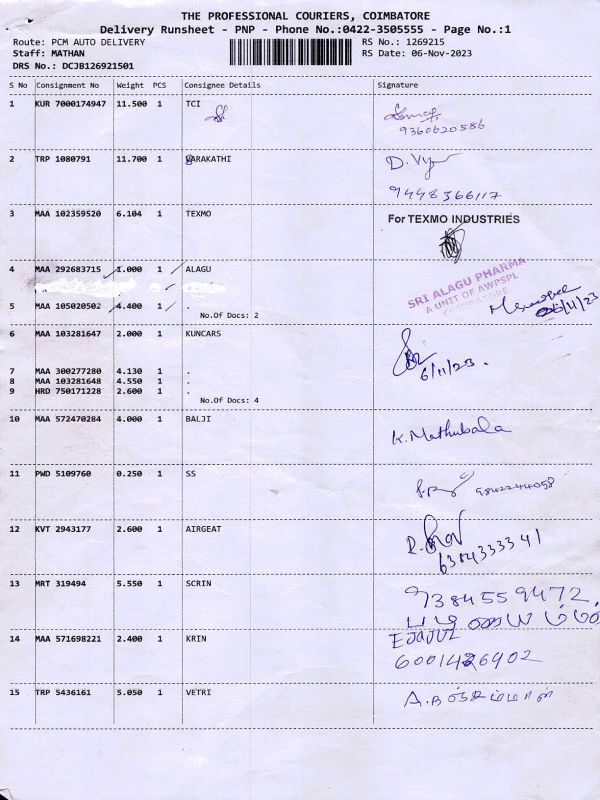 THE PROFESSIONAL COURIERS, COIMBATORE
Delivery Runsheet - PNP - Phone No.:0422-3505555 - Page No.:1
Route: PCM AUTO DELIVERY
Staff: MATHAN
DRS No.: DCJB126921501
RS No.: 1269215
RS Date: 06-Nov-2023
S No Consignment No Weight PCS Consignee Details Signature
1 KUR 7000174947 11.500 1 TCI
9360620586
2 TRP 1080791 11.700 1 PARAKATHI
D.
9448366117
3 MAA 102359520 6.104 1 TEXMO
For TEXMO INDUSTRIES
4 MAA 292683715 1.000 1 ALAGU
SRI ALAGU PHARMA
A UNIT OF AWPSPL
COIMBATORE
06/11/23
5 MAA 105020502 4.400 1 .
No.Of Docs: 2
6 MAA 103281647 2.000 1 KUNCARS
6/11/23.
7 MAA 300277280 4.130 1 .
8 MAA 103281648 4.550 1 .
9 HRD 750171228 2.600 1 .
No.Of Docs: 4
10 MAA 572470284 4.000 1 BALJI
K. Mathubala
11 PWD 5109760 0.250 1 SS
12 KVT 2943177 2.600 1 AIRGEAT
R.
6384333341
13 MRT 319494 5.550 1 SCRIN
9384559472,
14 MAA 571698221 2.400 1 KRIN
EJAJUL
6001426902
15 TRP 5436161 5.050 1 VETRI